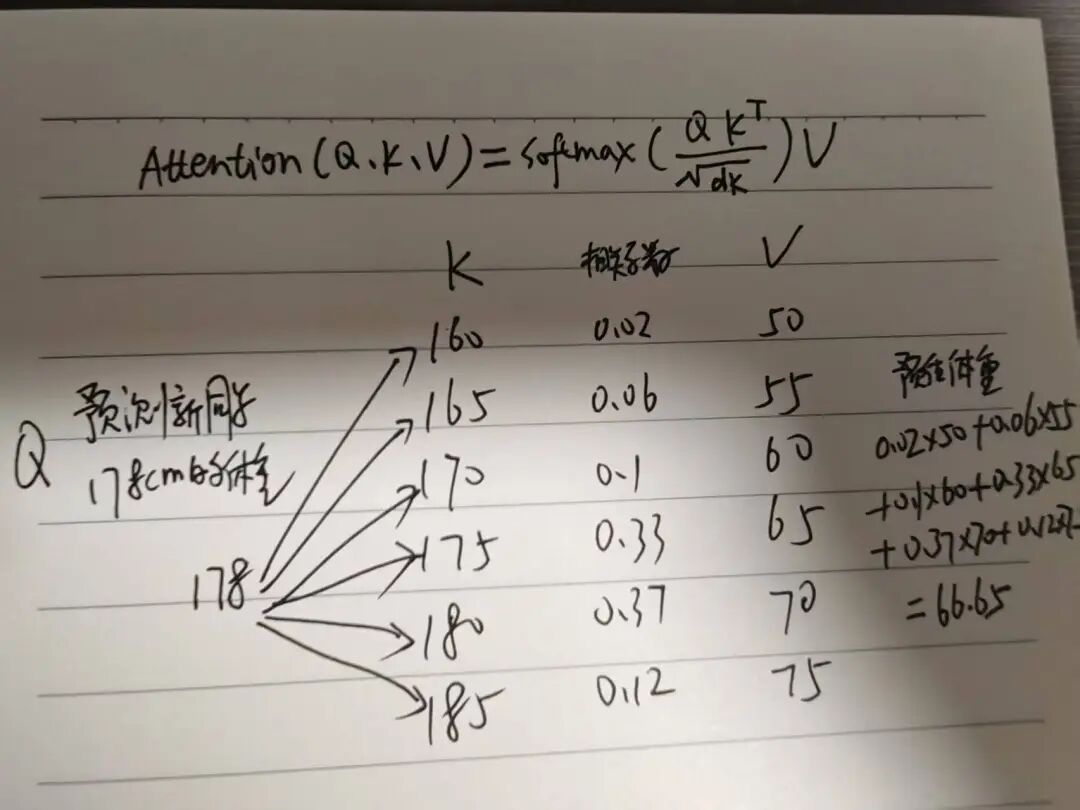 Attention (Q、K、V) = Softmax ( Q K^T / √dk ) V
K 相似系数 V
160 0.02 50
165 0.06 55
170 0.1 60
175 0.33 65
180 0.37 70
185 0.12 75
Q
预测新同学
178cm的体重
178
预估体重
0.02×50+0.06×55
+0.1×60+0.33×65
+0.37×70+0.12×7
=66.65